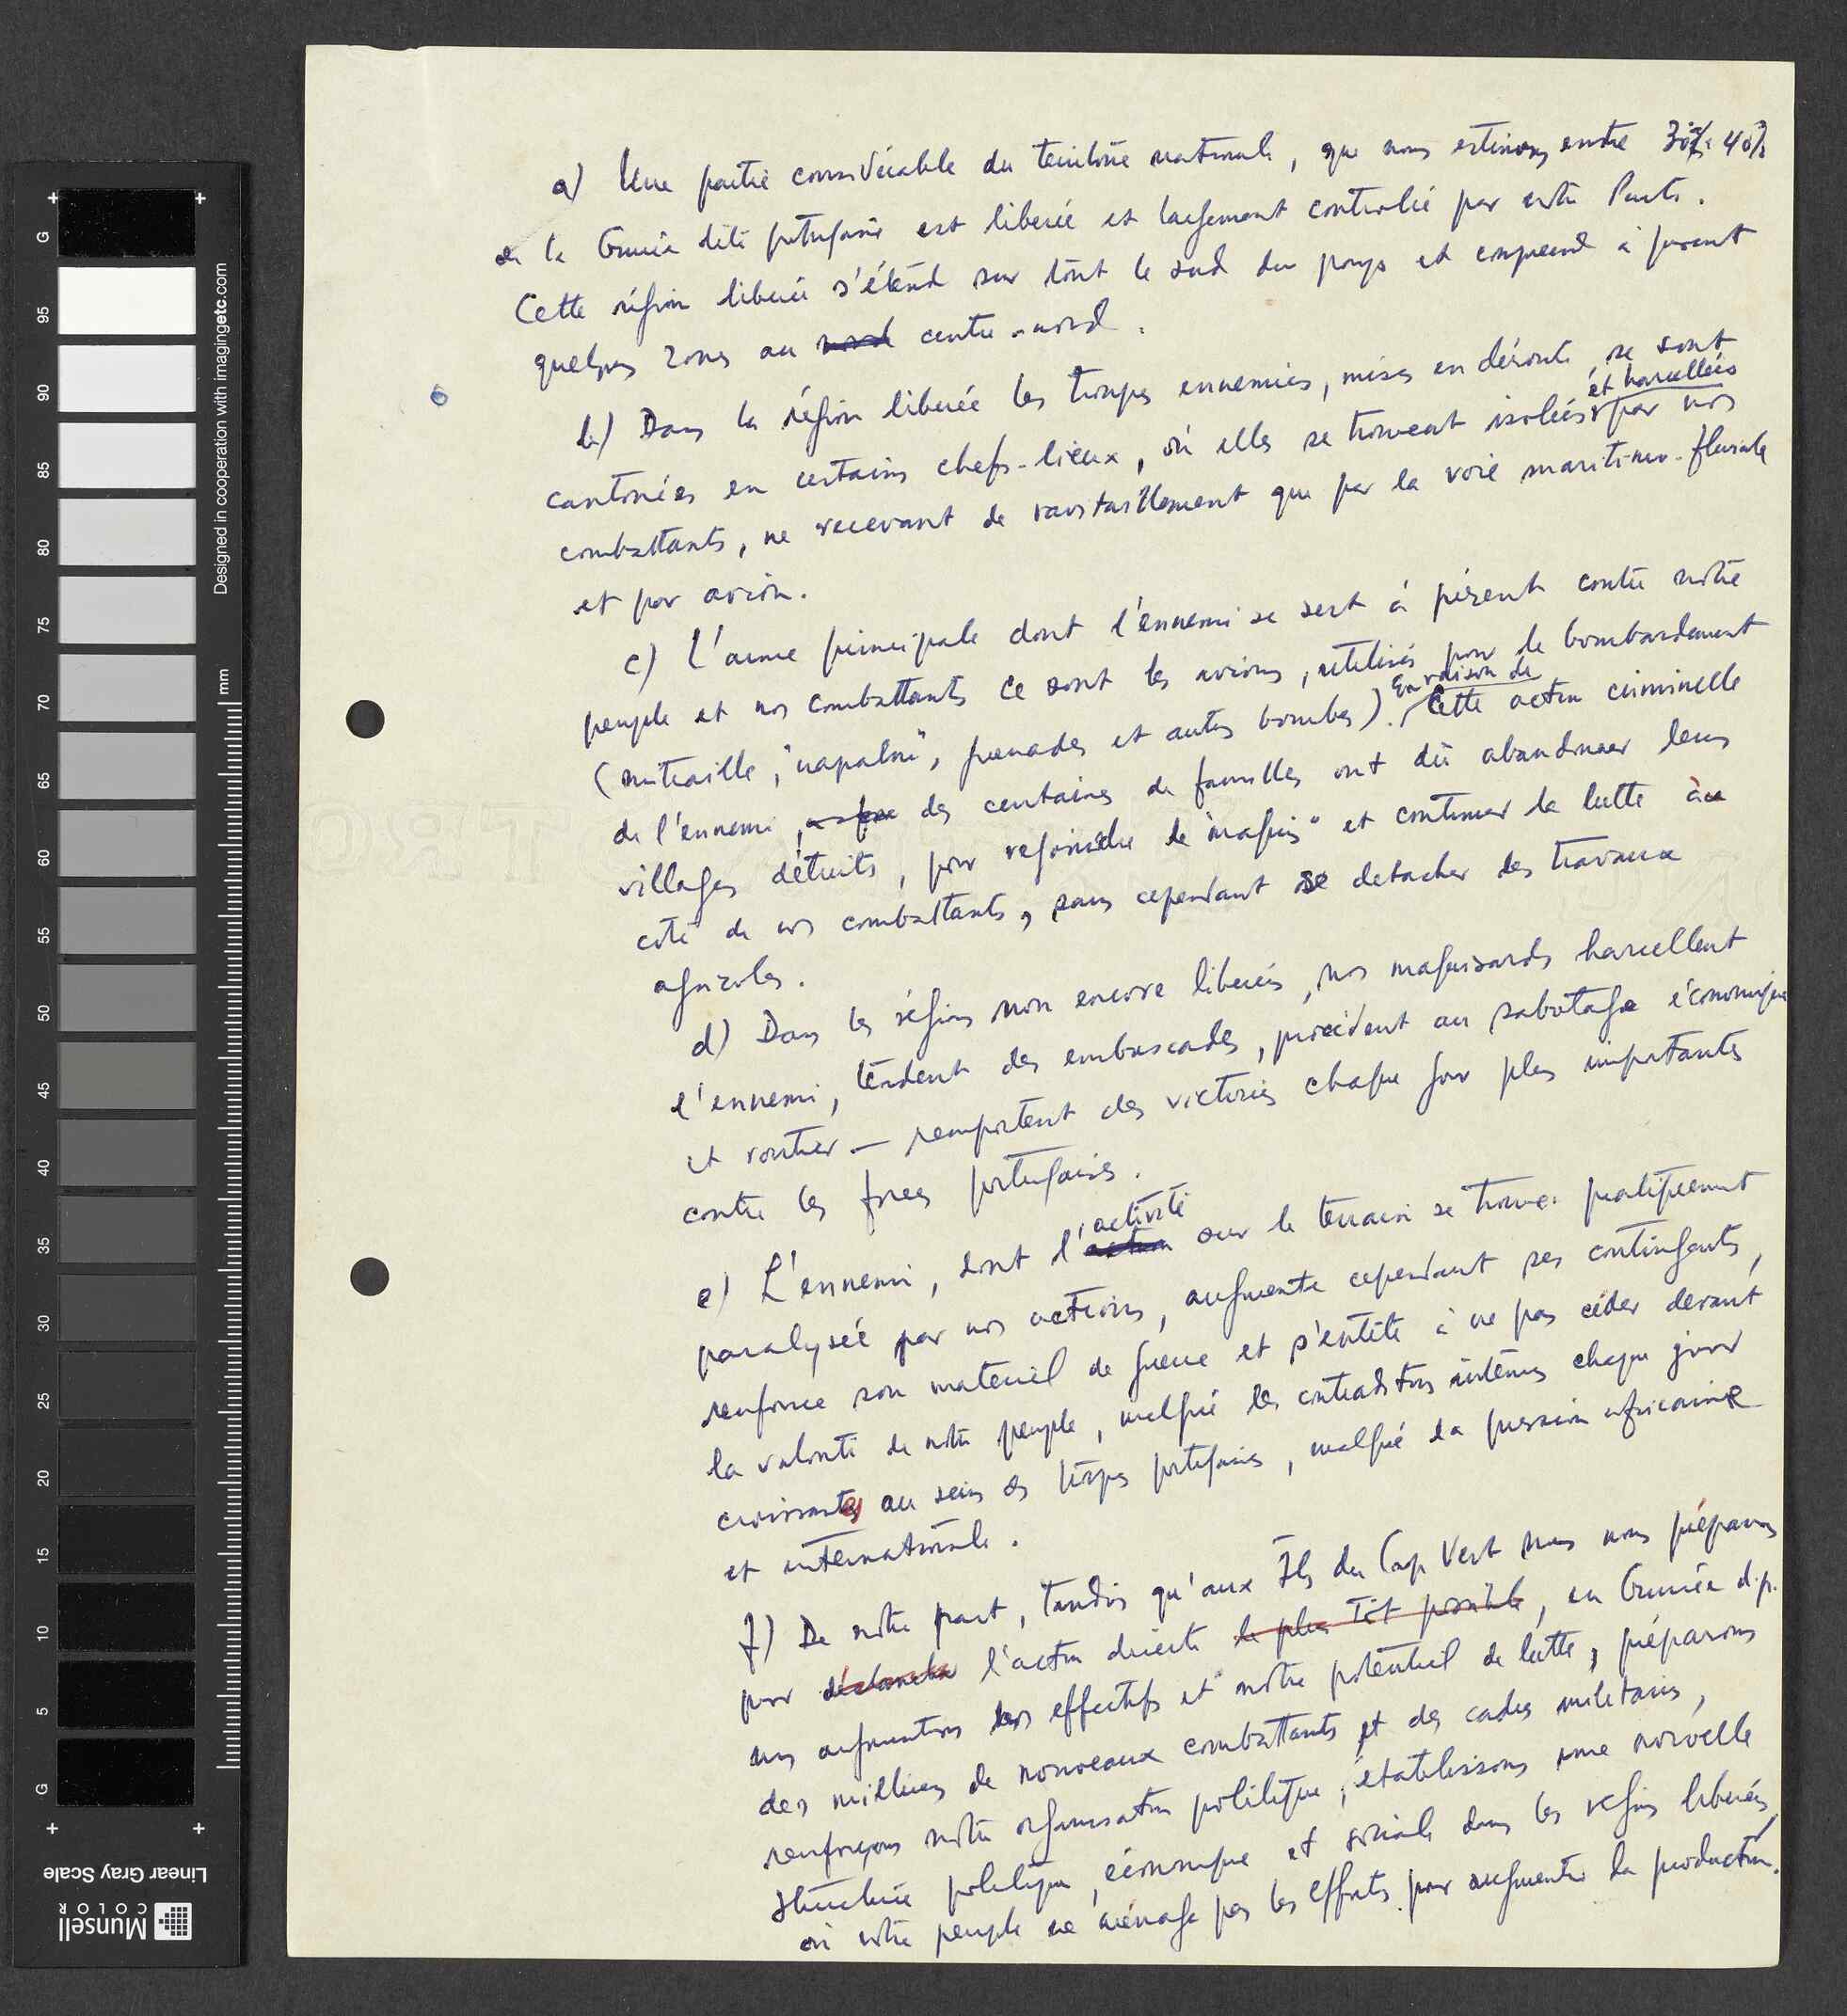 a) Une partie considérable du territoire nationale, que nous estimons entre 30% 40%
de la Guinée dite portugaise est liberée et largement controlée par notre Parti.
Cette région liberée s'étend sur tout le sud du pays et comprend à present
quelques zones au nord centre-nord.
b) Dans la région liberée les troupes ennemies, mises en déroute, se sont
cantonées en certains chefs-lieux, où elles se trouvent isolées et harcellées par nos
combattants, ne recevant de ravitaillement que par la voie maritimo-fluviale
et par avion.
c) L'arme principale dont l'ennemi se sert à présent contre notre
peuple et nos combattants ce sont les avions, utilisés pour le bombardement
(mitraille, "napalm", grenades et autres bombes). En raison de cette action criminelle
de l'ennemi, des centaines de familles ont dû abandonner leurs
villages détruits, pour rejoindre le "maquis" et continuer la lutte à
coté de nos combattants, sans cependant se detacher des travaux
agricoles.
d) Dans les régions non encore liberées, nos maquisards harcellent
l'ennemi, tendent des embuscades, procèdent au sabotage économique
et routier — remportent des victoires chaque jour plus importantes
contre les forces portugaises.
e) L'ennemi, dont l'action activité sur le terrain se trouve pratiquement
paralysée par nos actions, augmente cependant ses contingents,
renforce son materiel de guerre et s'entête à ne pas céder devant
la volonté de notre peuple, malgré les contradictions internes chaque jour
croissantes au sein des troupes portugaises, malgré la pression africaine
et internationale.
f) De notre part, tandis qu'aux Iles du Cap Vert nous nous préparons
pour déclancher l'action directe le plus tôt possible, en Guinée d.p.
nous augmentons les effectifs et notre potentiel de lutte, préparons
des milliers de nouveaux combattants et des cadres militaires,
renforçons notre organisation politique, établissons une nouvelle
structure politique, économique et sociale dans les régions liberées,
où notre peuple ne ménage pas les efforts pour augmenter la production.
G 95 90 85 80 75 70 65 60 55 50 45 40 35 30 25 20 15 10 5 G
Designed in cooperation with imagingetc.com
mm
Linear Gray Scale
Munsell
COLOR